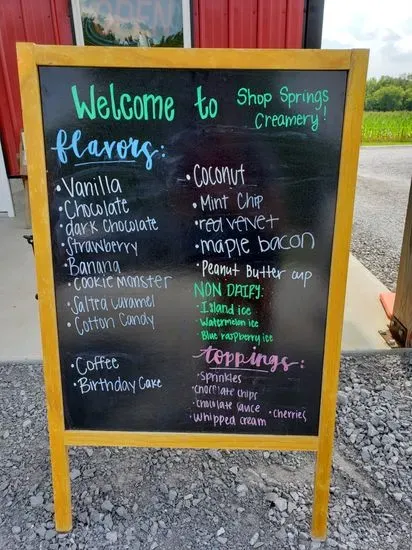 OPEN
Welcome to Shop Springs
Creamery!
flavors:
• Vanilla
• Chocolate
• dark Chocolate
• Strawberry
• Banana
• Cookie Monster
• Salted Caramel
• Cotton Candy
• Coffee
• Birthday Cake
• Coconut
• Mint Chip
• red velvet
• maple bacon
• Peanut Butter cup
NON DAIRY:
• Island ice
• Watermelon ice
• Blue raspberry ice
toppings:
• Sprinkles
• chocolate chips
• chocolate sauce • cherries
• Whipped cream